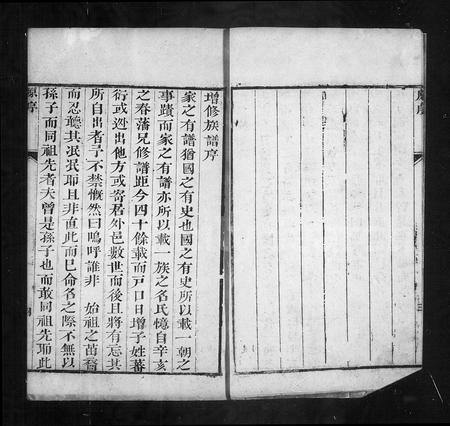 增修族譜序
家之有譜猶國之有史也國之有史所以載一朝之
事蹟而家之有譜亦所以載一族之名氏憶自辛亥
之春藩兄修譜距今四十餘載而戸口日增子姓蕃
衍或迯出他方或寄居外邑數世而後且將有忘其
所自出者予不禁慨然曰嗚呼誰非 始祖之苗裔
而忍聽其泯泯耶且非直此而巳命名之際不無以
孫子而同祖先者夫曾是孫子也而敢同祖先耶此